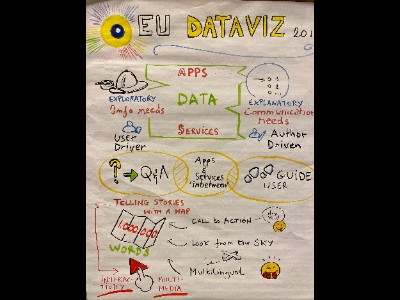 EU DATAVIZ 201
APPS
DATA
SERVICES
EXPLORATORY
Info needs
USER
Driver
EXPLANATORY
Communication
needs
Author
Driven
? → Q&A
Apps
&
Services
"inbetween"
GUIDE
USER
TELLING STORIES
WITH A MAP
1.000.000
WORDS
CALL to ACTION
Look from the SKY
Multilingual
INTERAC-
TIVITY
MULTI-
MEDIA